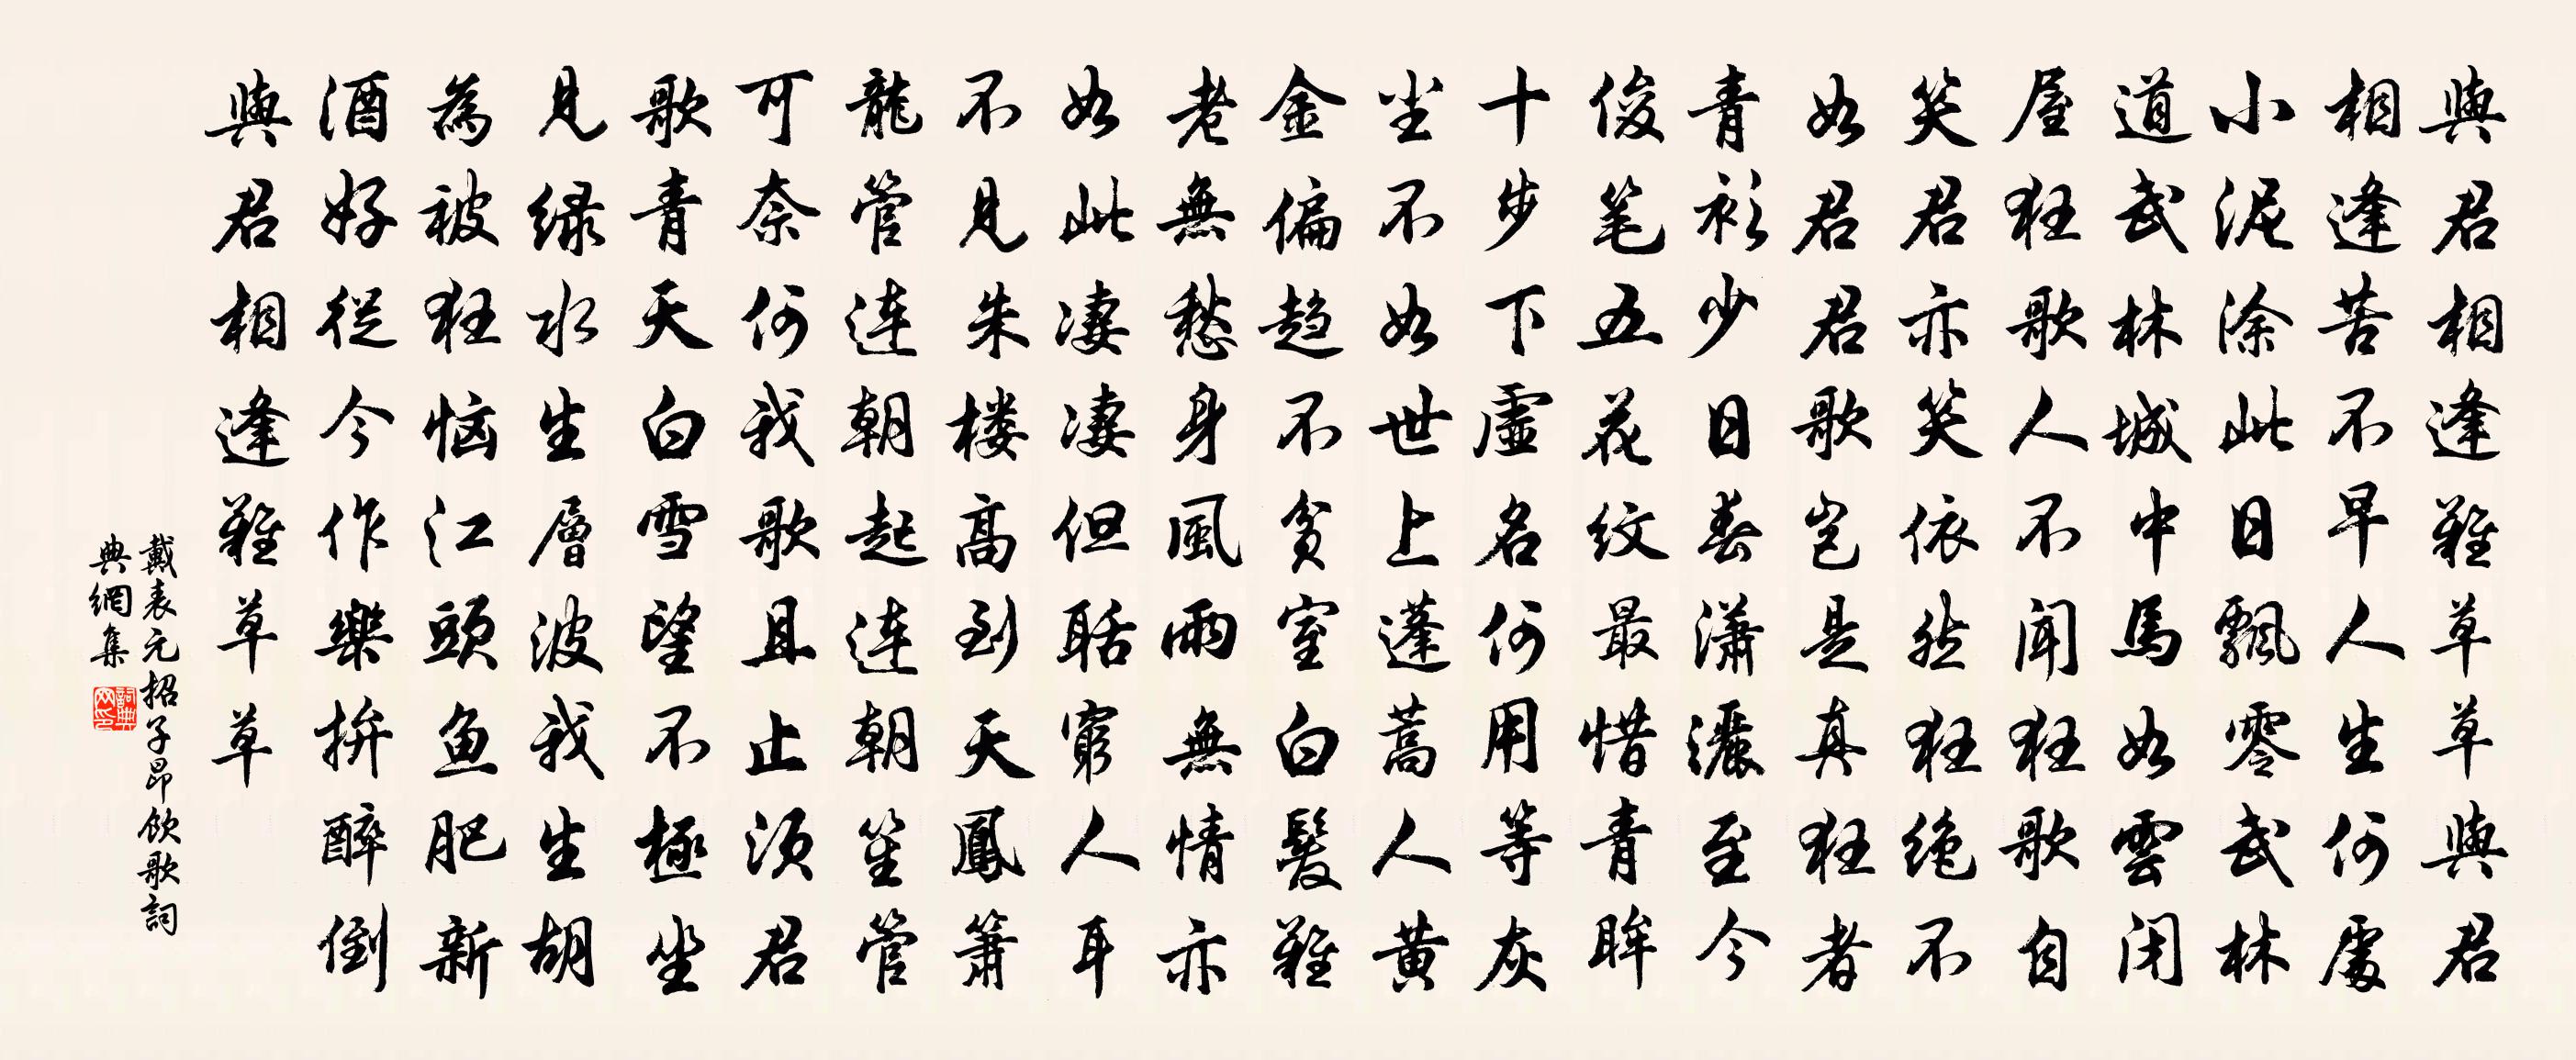 與君相逢難草草與君
相逢苦不早人生何處
小泥涂此日飄零武林
道武林城中馬如雲闭
屋狂歌人不闻狂歌自
笑君亦笑依然狂绝不
如君君歌岂是真狂者
青衫少日春潇灑至今
俊笔五花纹最惜青眸
十步下虛名何用等灰
尘不如世上蓬蒿人黄
金偏趋不贫室白髮難
老無愁身風雨無情亦
如此凄凄但聒窮人耳
不見朱楼高到天鳳箫
龍管连朝起连朝笙管
可奈何我歌且止须君
歌青天白雪望不極坐
見绿水生層波我生胡
為被狂恼江頭鱼肥新
酒好從今作樂拚醉倒
與君相逢難草草
戴表元招子昂饮歌詞
典網集
詞典网印